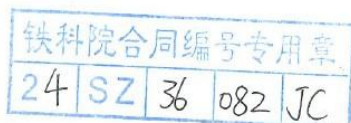 铁科院合同编号专用章
24 SZ 36 082 JC